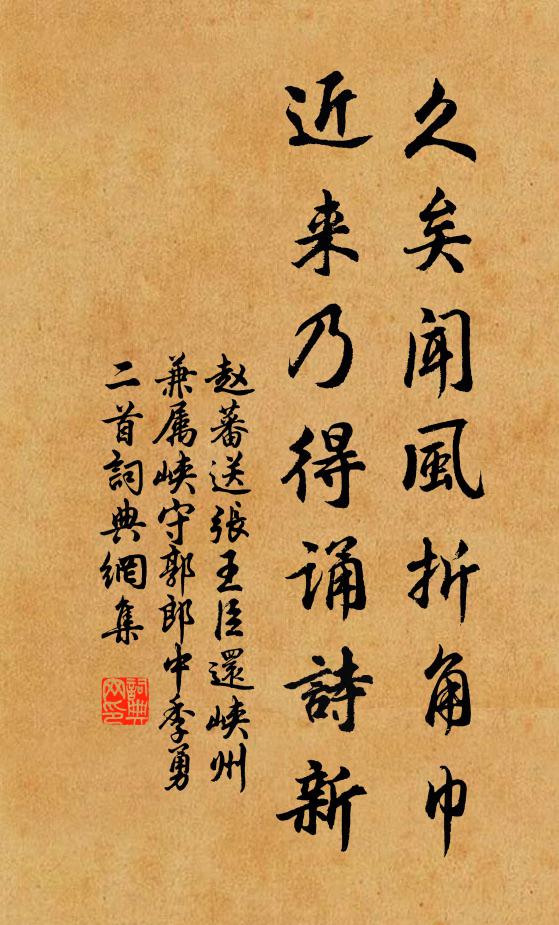 久矣聞風折角巾
近来乃得诵詩新
赵蕃送張王臣還峡州
兼属峡守郭郎中季勇
二首詞典網集
詞典
网印